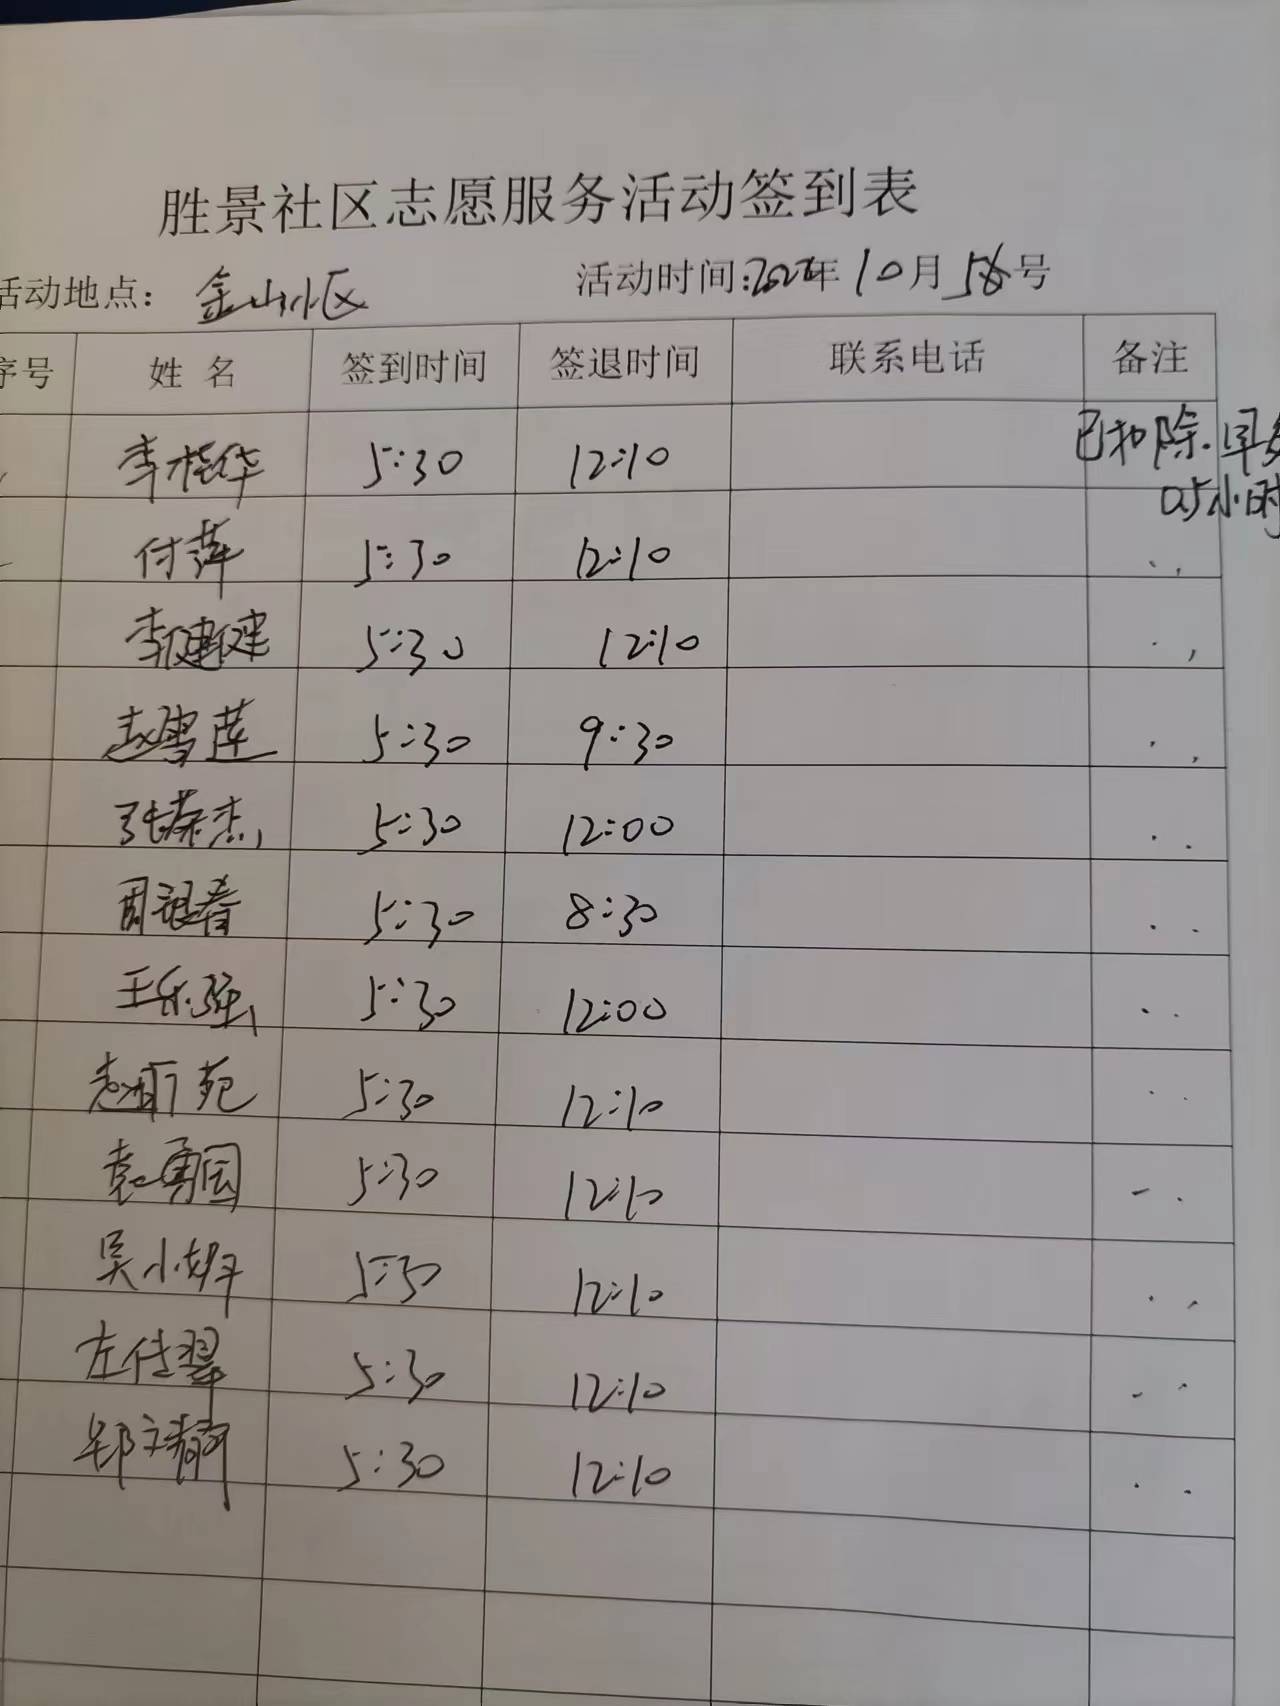 胜景社区志愿服务活动签到表
活动地点：金山小区 活动时间：2022年10月 号
序号 姓名 签到时间 签退时间 联系电话 备注
李桂华 5:30 12:10 已扣除.早
0.5小时
付萍 5:30 12:10
李建 5:30 12:10
赵雪莲 5:30 9:30
张荣杰 5:30 12:00
周银春 5:30 8:30
王乐强 5:30 12:00
苑 5:30 12:10
袁勇国 5:30 12:10
吴小娟 5:30 12:10
左仕翠 5:30 12:10
郑文 5:30 12:10